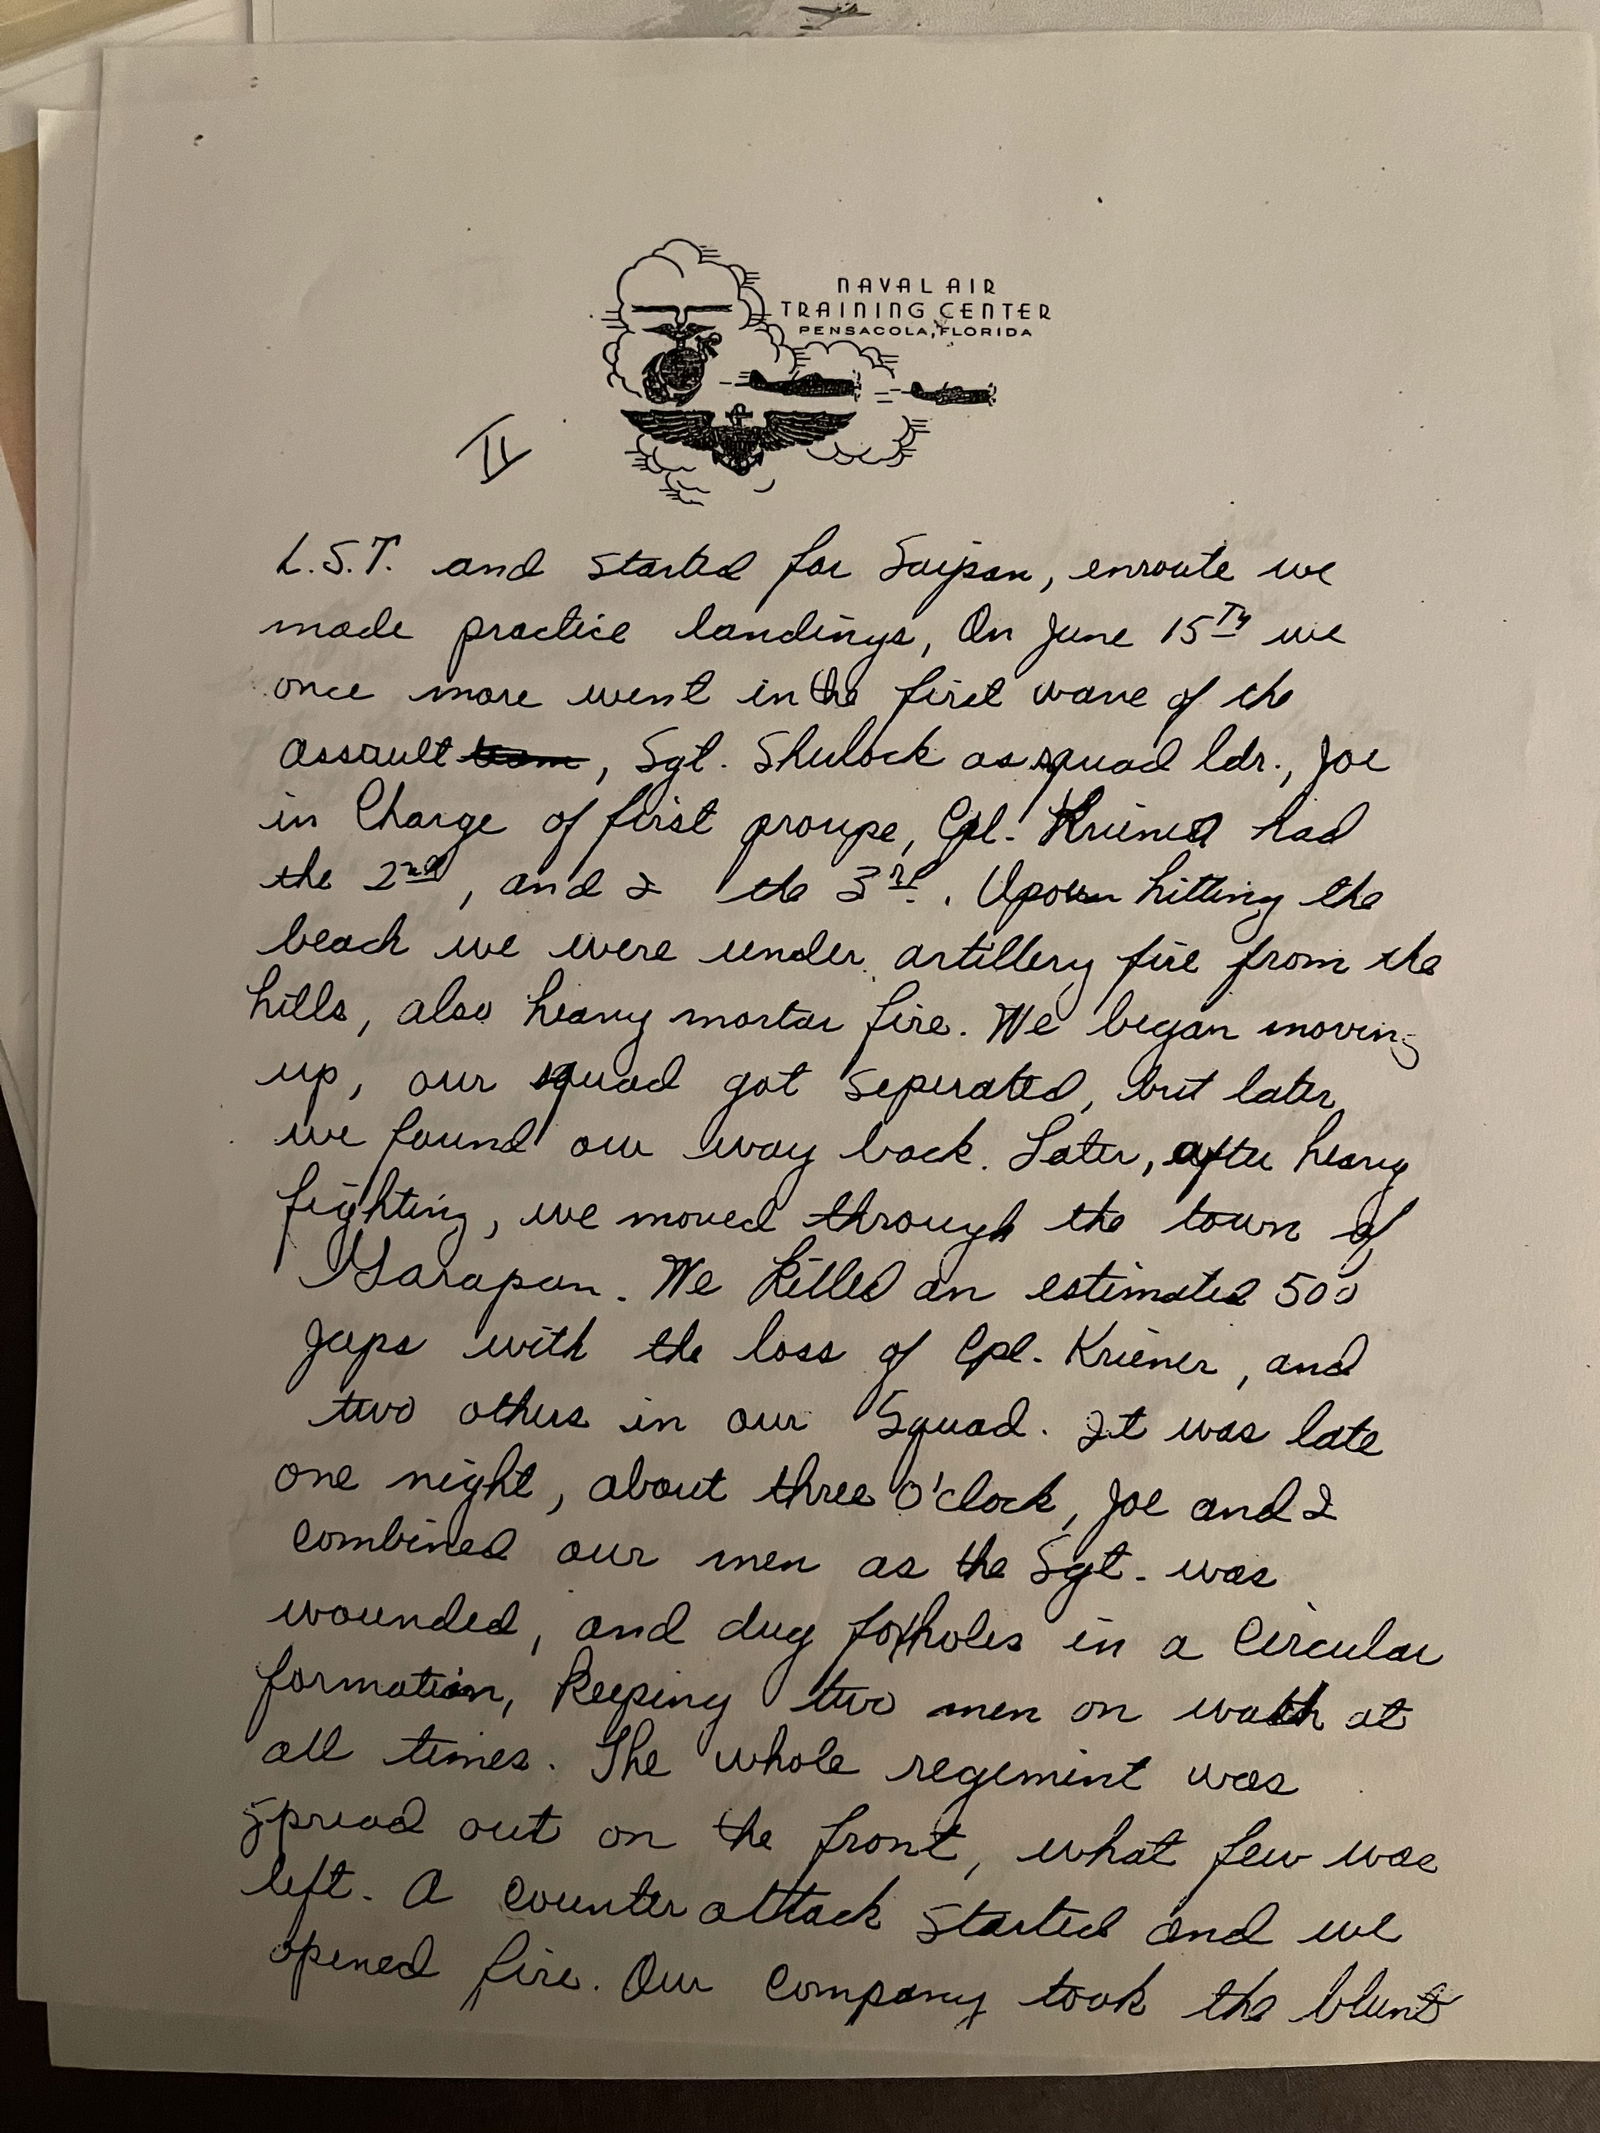 NAVAL AIR
TRAINING CENTER
PENSACOLA, FLORIDA
II
L.S.T. and started for Saipan, enroute we
made practice landings, On June 15TH we
once more went in the first wave of the
assault team, Sgt. Shulock as squad ldr., Joe
in Charge of first groupe, Cpl. Kriener had
the 2nd, and I the 3rd. Upon hitting the
beach we were under artillery fire from the
hills, also heavy mortar fire. We began moving
up, our squad got seperated, but later
we found our way back. Later, after heavy
fighting, we moved through the town of
Garapan. We killed an estimated 500
Japs with the loss of Cpl. Kriener, and
two others in our Squad. It was late
one night, about three O'clock, Joe and I
combined our men as the Sgt. was
wounded, and dug foxholes in a Circular
formation, keeping two men on watch at
all times. The whole regement was
spread out on the front, what few was
left. A counter attack started and we
opened fire. Our Company took the blunt